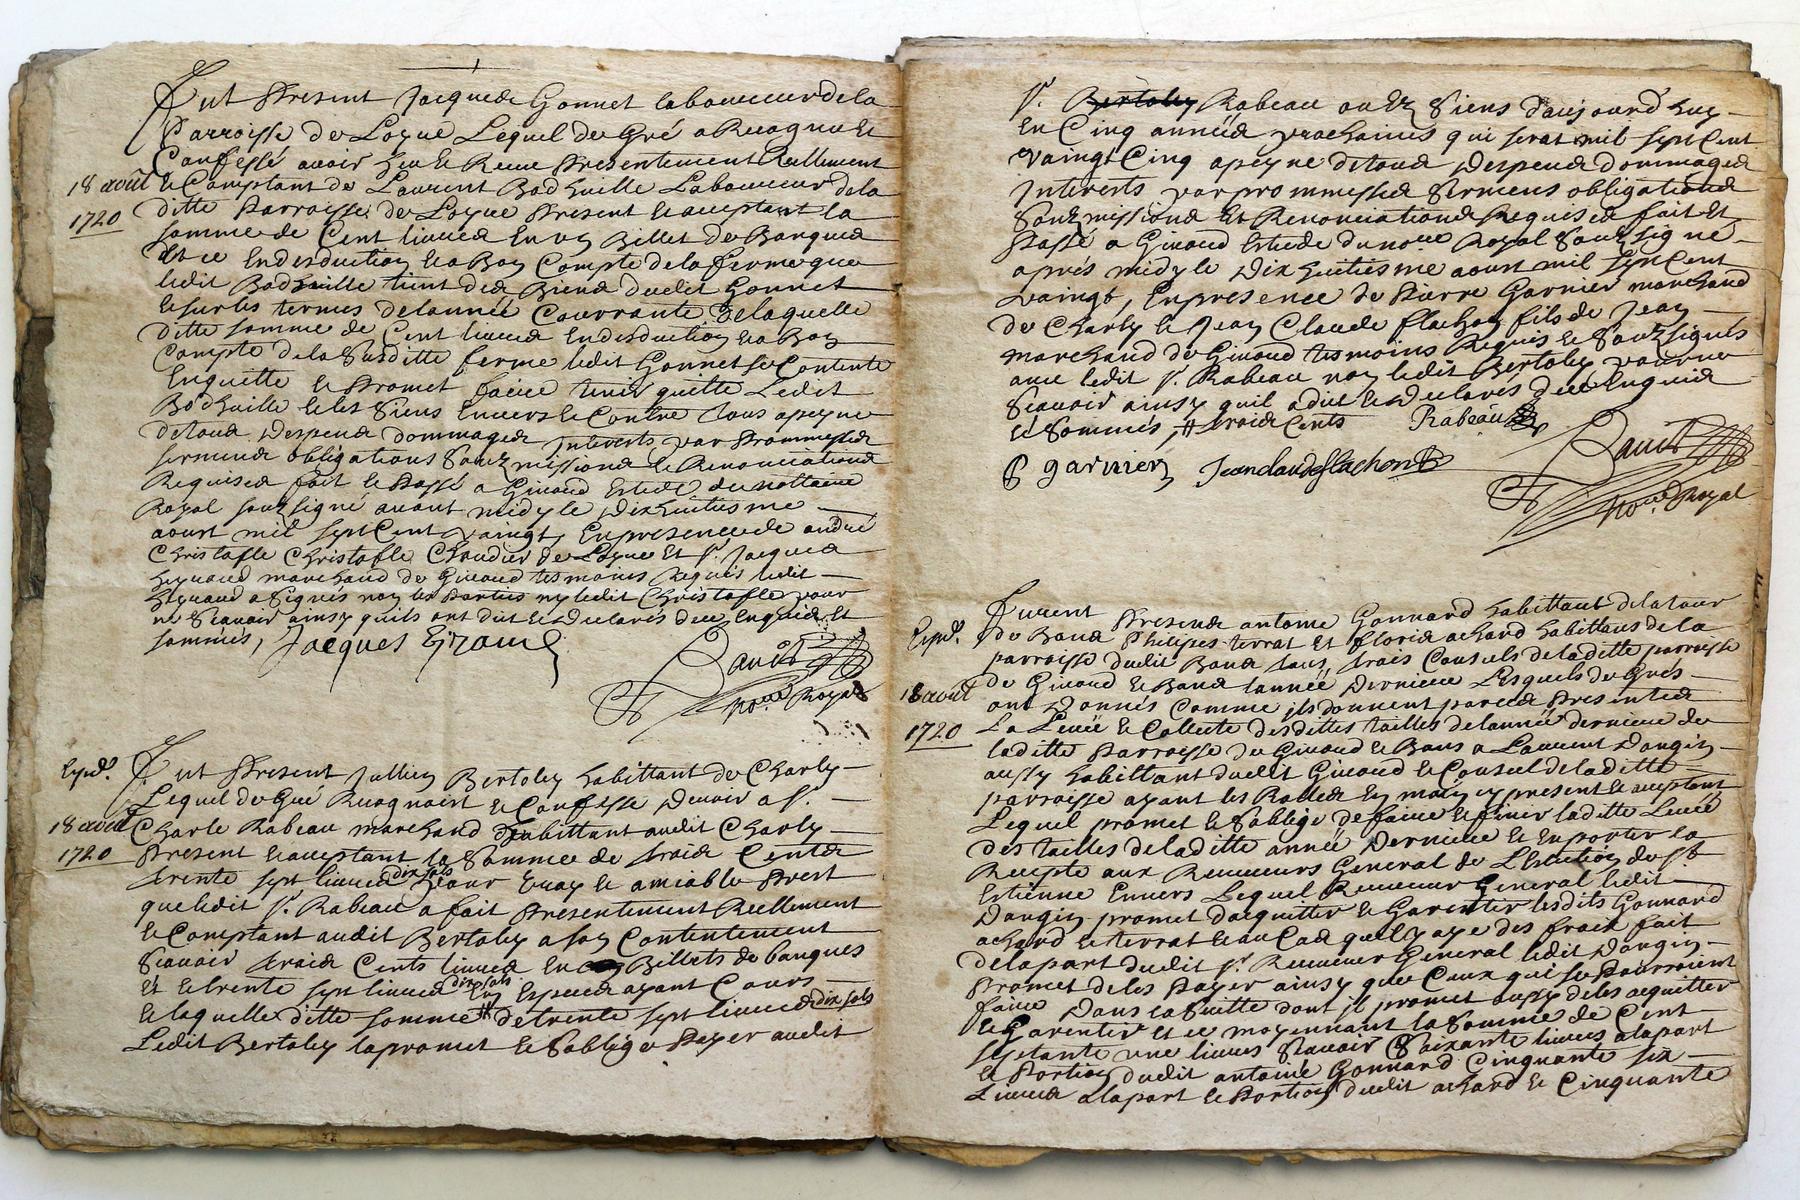 Fut Present Jacques Gonnet laboureur de la
Parroisse de Logue Lequel de Gré a Recognu Et
Confessé avoir heu et Receu Presentement Reellement
18 août
1720
et Comptant de Laurent Bodhuille Laboureur de la
ditte Parroisse de Logue Present et acceptant la
somme de Cent livres En un Billet de Banque
Et ce En desduction et a Bon Compte de la ferme que
ledit Bodhuille tient des Biens dudit Gonnet
et sur les termes de lannée Courrante De laquelle
ditte somme de Cent livres En desduction et a Bon
Compte de la Susditte ferme ledit Gonnet se Contente
Enquitte et Promet faire tenir quitte Ledit
Bodhuille et les Siens Envers et Contre tous a peyne
de tous Despens dommages Interests par Prommesses
sermens obligations Soubzmissions et Renonciations
Requises fait et Passé a Givord Estude du nottaire
Royal soubsigné avant midy le Dix huitiesme
aoust mil sept Cent vaingt, En presence de andré
Christofle Christofle Chaudier de Logue Et Sr. Jacques
marchand de Givord tesmoins Requis ledit
a Signé non les Parties ny ledit Christofle pour
ne Sçavoir ainsy quils ont dit et declaré de ce Enquis Et
sommés, Jacques
no.re Royal
Exped.
Fut Present Jullien Bertoley habittant de Charly
Lequel de Gré Recognoist et Confesse Devoir a Sr.
18 août
1720
Charle Rabeau marchand habittant audit Charly
Present et acceptant la Somme de trois Cents
trente sept livres dix sols Pour Vray et amiable Prest
que ledit Sr. Rabeau a fait Presentement Reellement
et Comptant audit Bertoley a son Contentement
Sçavoir trois Cents livres En Billets de banques
Et et trente sept livres dix sols En Especes ayant Cours
et laquelle ditte somme de trente sept livres dix sols
Ledit Bertoley la promet et Soblige Payer audit
Sr. Bertoley Rabeau ou es Siens daujourdhuy
En Cinq années prochaines qui serat mil sept Cent
vaingt Cinq a peyne de tous Despens dommages
Interests par prommesses sermens obligations
Soubzmissions Et Renonciations Requises fait Et
Passé a Givord Estude du no.re Royal Soubsigné
aprés midy le Dix huitiesme aoust mil sept Cent
vaingt, En presence de Pierre Garnier marchand
de Charly et Jean Claude flachon fils de Jean
marchand de Givord tesmoins Requis et Soubsignés
avec ledit Sr. Rabeau non ledit Bertoley pour ne
Sçavoir ainsy quil a dit et declaré de ce Enquis
et Sommés, # trois Cents Rabeau
P garnier Jean claude flachon
no.re Royal
Exped.
Furent Presens antoine Gonnard habittant de la tour
de Bans Philipes terrat Et floris achard habittans de la
parroisse dudit Bans tous trois Consuls de la ditte parroisse
de Givord et Bans lannée Derniere Lesquels de Grés
18 août
1720
ont Donnés Comme ils donnent par ces Presentes
La Levée et Collecte desdittes tailles de lannée derniere de
laditte Parroisse de Givord et Bans a Laurent Dangin
aussy habittant dudit Givord et Consul de laditte
parroisse ayant les Rolles En main cy present et acceptant
Lequel promet et Soblige de faire et finir laditte Levée
des tailles de laditte année Derniere et En porter la
Recepte aux Receveurs General de LEslection de St
Estienne Envers Lequel Receveur General ledit
Dangin promet dacquitter et Garentir lesdits Gonnard
achard et terrat et au Cas quil y aye des frais fait
de la part dudit Sr. Receveur General ledit Dangin
Promet de les Payer ainsy que Ceux qui se Pourroient
faire Dans la Suitte dont il promet aussy de les acquitter
et Garentir Et ce moyennant la Somme de Cent
septante une livres Sçavoir Soixante livres a la part
et Portion dudit antoine Gonnard Cinquante six
Livres a la part et Portion dudit achard et Cinquante